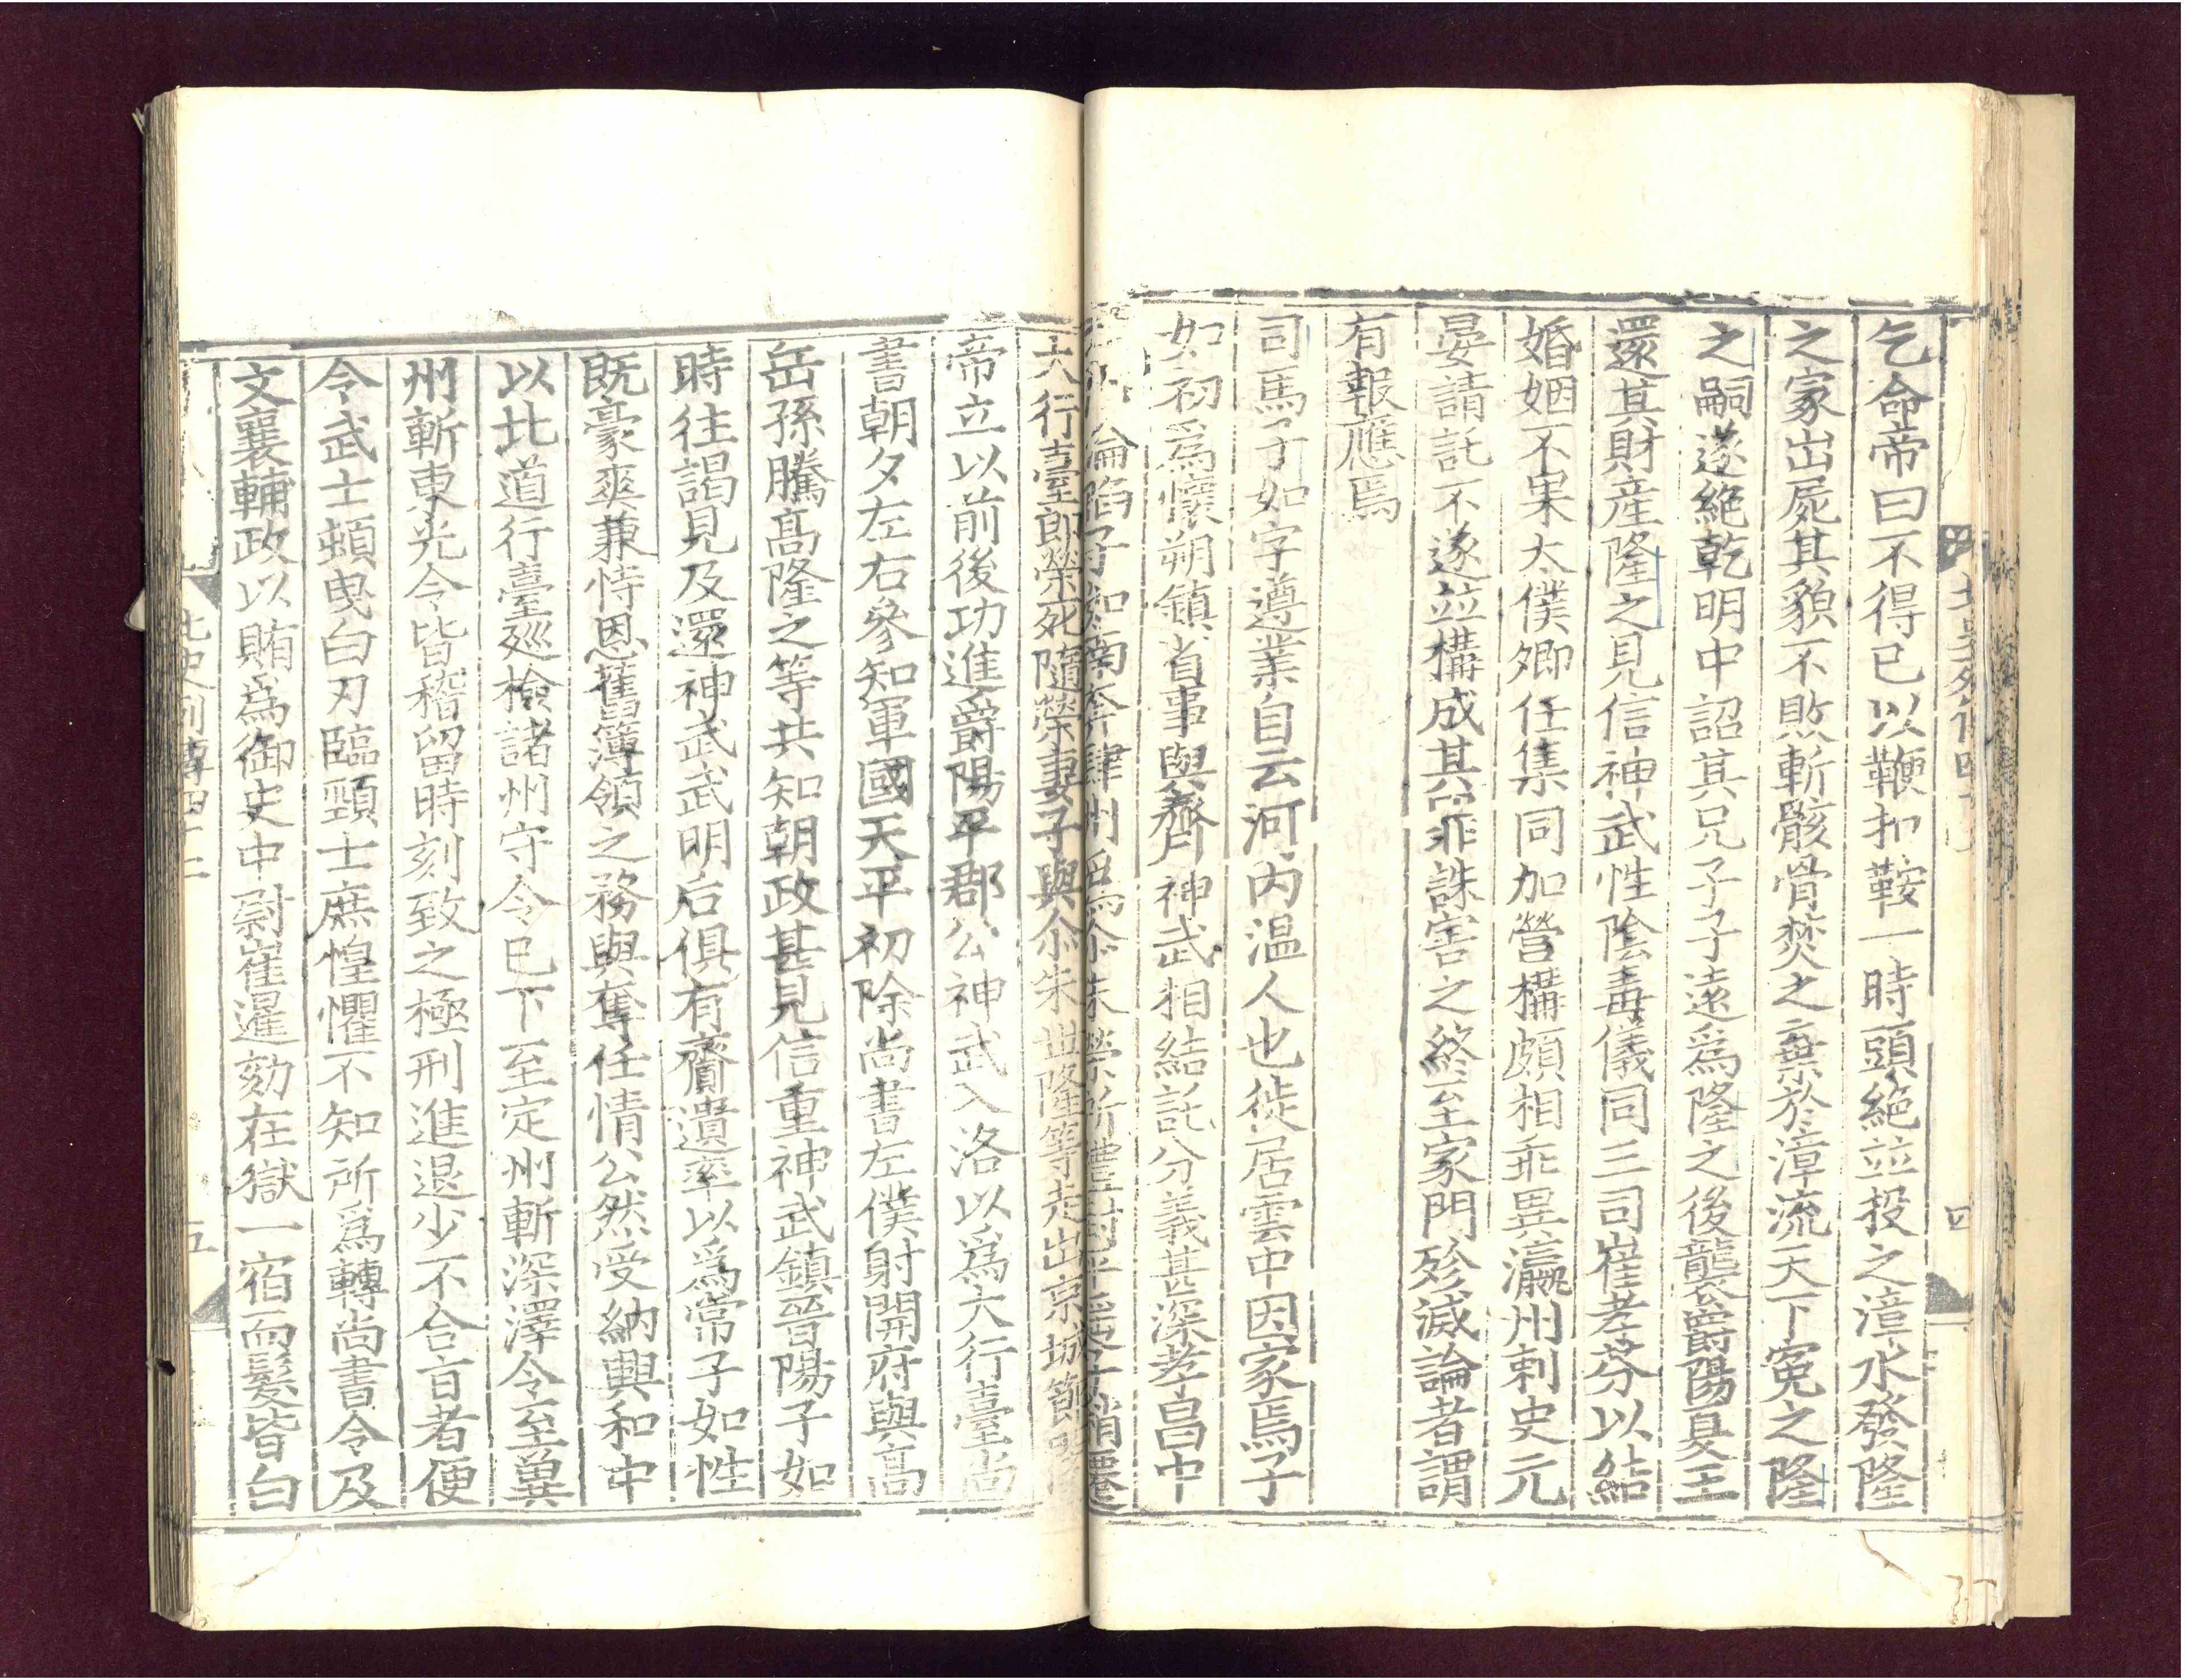 乞命帝曰不得已以鞭扣鞍一時頭絕並投之漳水發隆
之冢出屍其貌不敗斬骸骨焚之棄於漳流天下寃之隆
之嗣遂絕乾明中詔其兄子子遠爲隆之後襲爵陽夏王
還其財産隆之見信神武性陰毒儀同三司崔孝芬以結
婚姻不果太僕卿任集同加營構頗相乖異瀛州刺史元
晏請託不遂並構成其罪誅害之終至家門殄滅論者謂
有報應焉
司馬子如字遵業自云河内温人也徙居雲中因家焉子
如初爲懷朔鎮省事與齊神武相結託分義甚深孝昌中
淪陷子如南奔肆州爲尒朱榮所禮封平遥子稍遷
大行臺郎榮死隨榮妻子與尒朱世隆等走出京城節閔
帝立以前後功進爵陽平郡公神武入洛以爲大行臺尚
書朝夕左右參知軍國天平初除尚書左僕射開府與高
岳孫騰髙隆之等共知朝政甚見信重神武鎮晉陽子如
時往謁見及還神武武明后俱有賫遺率以爲常子如性
既豪爽兼恃恩舊簿領之務與奪任情公然受納興和中
以北道行臺廵檢諸州守令已下至定州斬深澤令至兾
州斬東光令皆稽留時刻致之極刑進退少不合盲者便
令武士頓曳白刃臨頸士庶惶懼不知所爲轉尚書令及
文襄輔政以賄爲御史中尉崔暹劾在獄一宿而髮皆白
北史列傳四十二
五
四